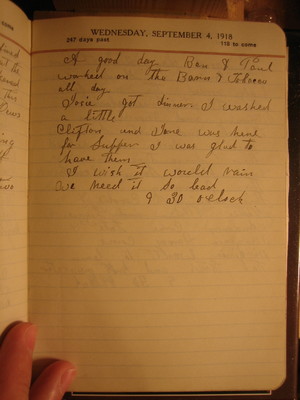 WEDNESDAY, SEPTEMBER 4, 1918
247 days past
118 to come
A good day Ben & Paul
worked on the Barn & Tobacco
all day
Josie got dinner I washed
a little
Clifton and Jane was here
for Supper I was glad to
have them
I wish it would rain
we need it so bad
9 30 o'clock